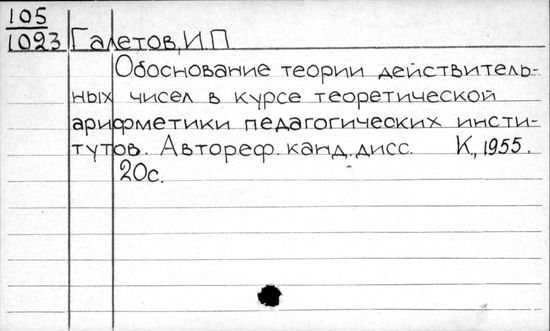 105
1023 Галетов, И.П.
Обоснование теории действитель-
ных чисел в курсе теоретической
арифметики педагогических инсти-
тутов. Автореф. канд. дисс. К., 1955.
20с.